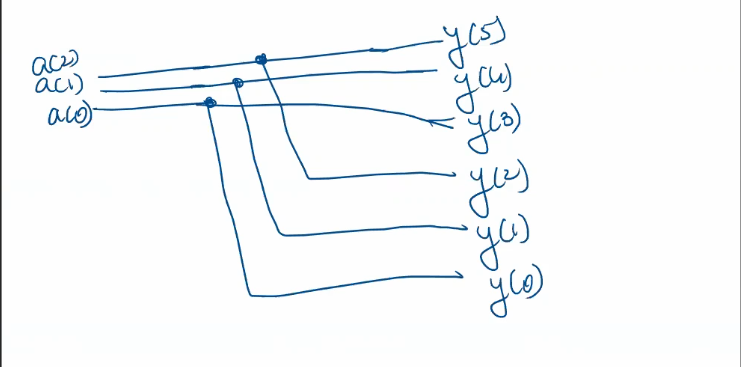 a(2)
a(1)
a(0)
y(5)
y(4)
y(3)
y(2)
y(1)
y(0)